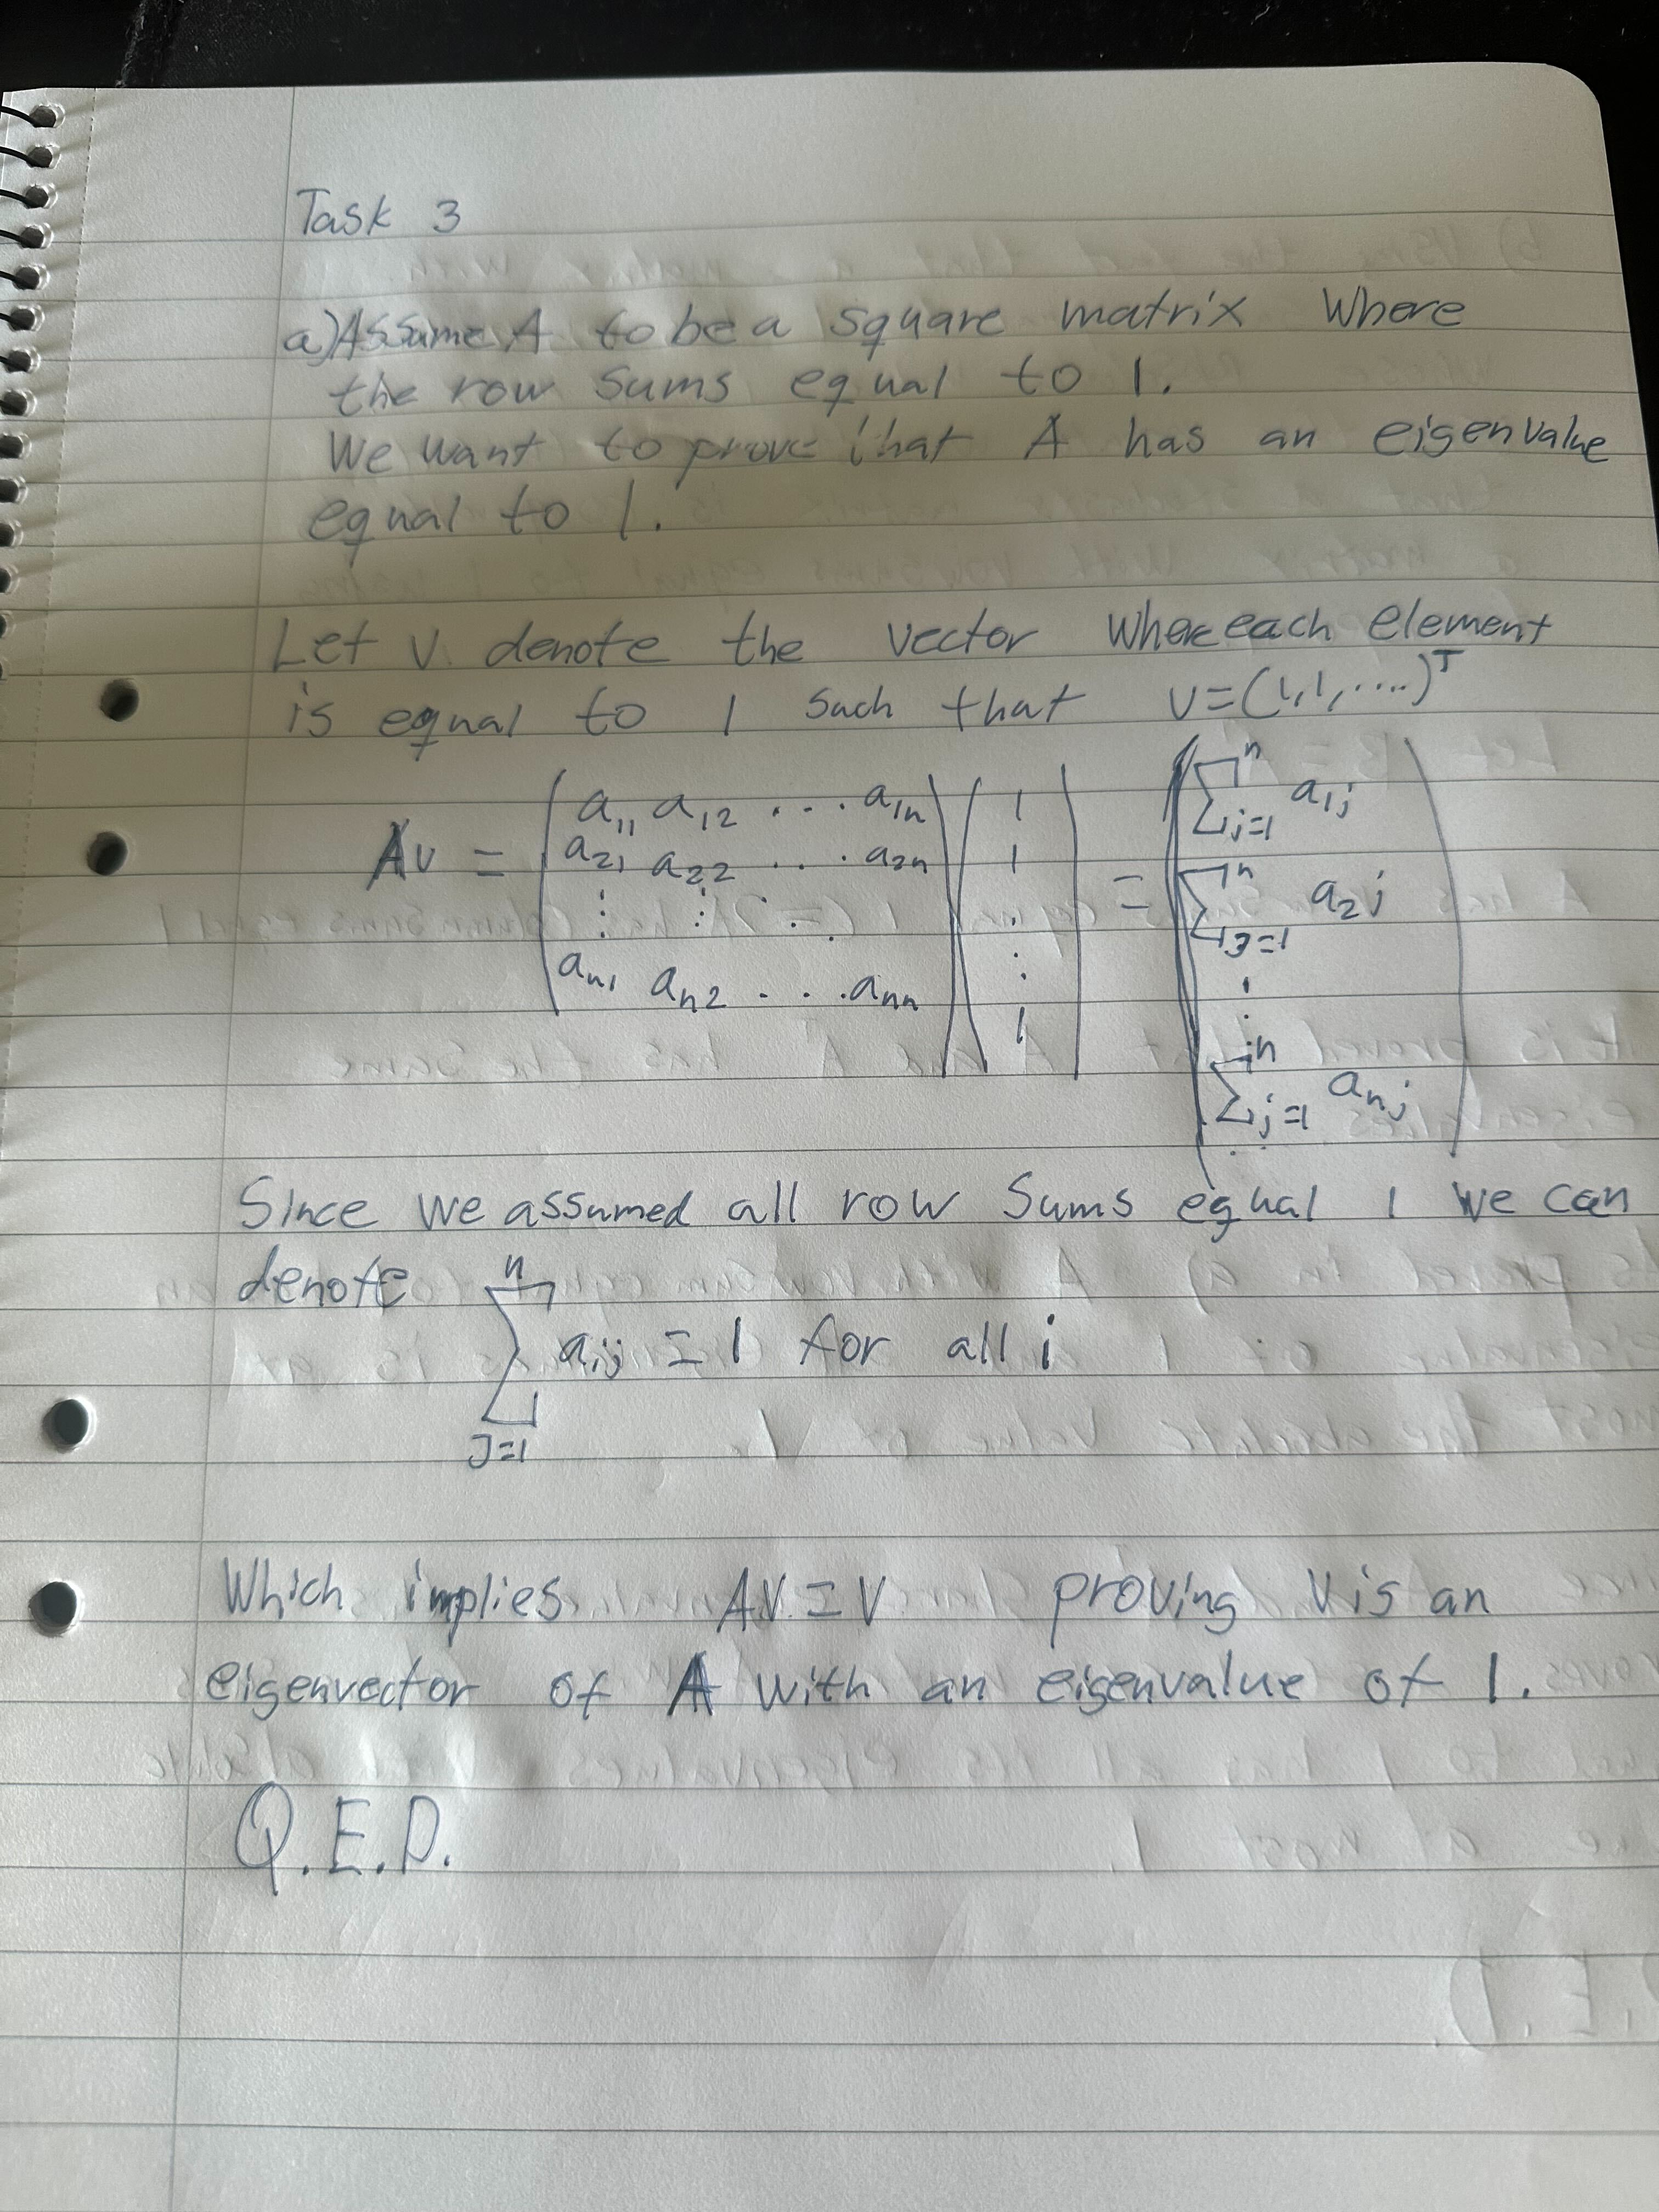 Task 3
a) Assume A to be a square matrix where
the row sums equal to 1.
We want to prove that A has an eigenvalue
equal to 1.
Let v denote the vector where each element
is equal to 1 such that v=(1,1,....)ᵀ
Av = ( a₁₁ a₁₂ ... a₁ₙ ) ( 1 ) = ( ∑ⁿⱼ₌₁ a₁ⱼ )
( a₂₁ a₂₂ ... a₂ₙ ) ( 1 ) ( ∑ⁿⱼ₌₁ a₂ⱼ )
( ⋮ ⋮ ⋱ ) ( ⋮ ) ( ⋮ )
( aₙ₁ aₙ₂ ... aₙₙ ) ( 1 ) ( ∑ⁿⱼ₌₁ aₙⱼ )
Since we assumed all row sums equal 1 we can
denote ∑ⁿⱼ₌₁ aᵢⱼ = 1 for all i
Which implies Av = v proving v is an
eigenvector of A with an eigenvalue of 1.
Q.E.D.